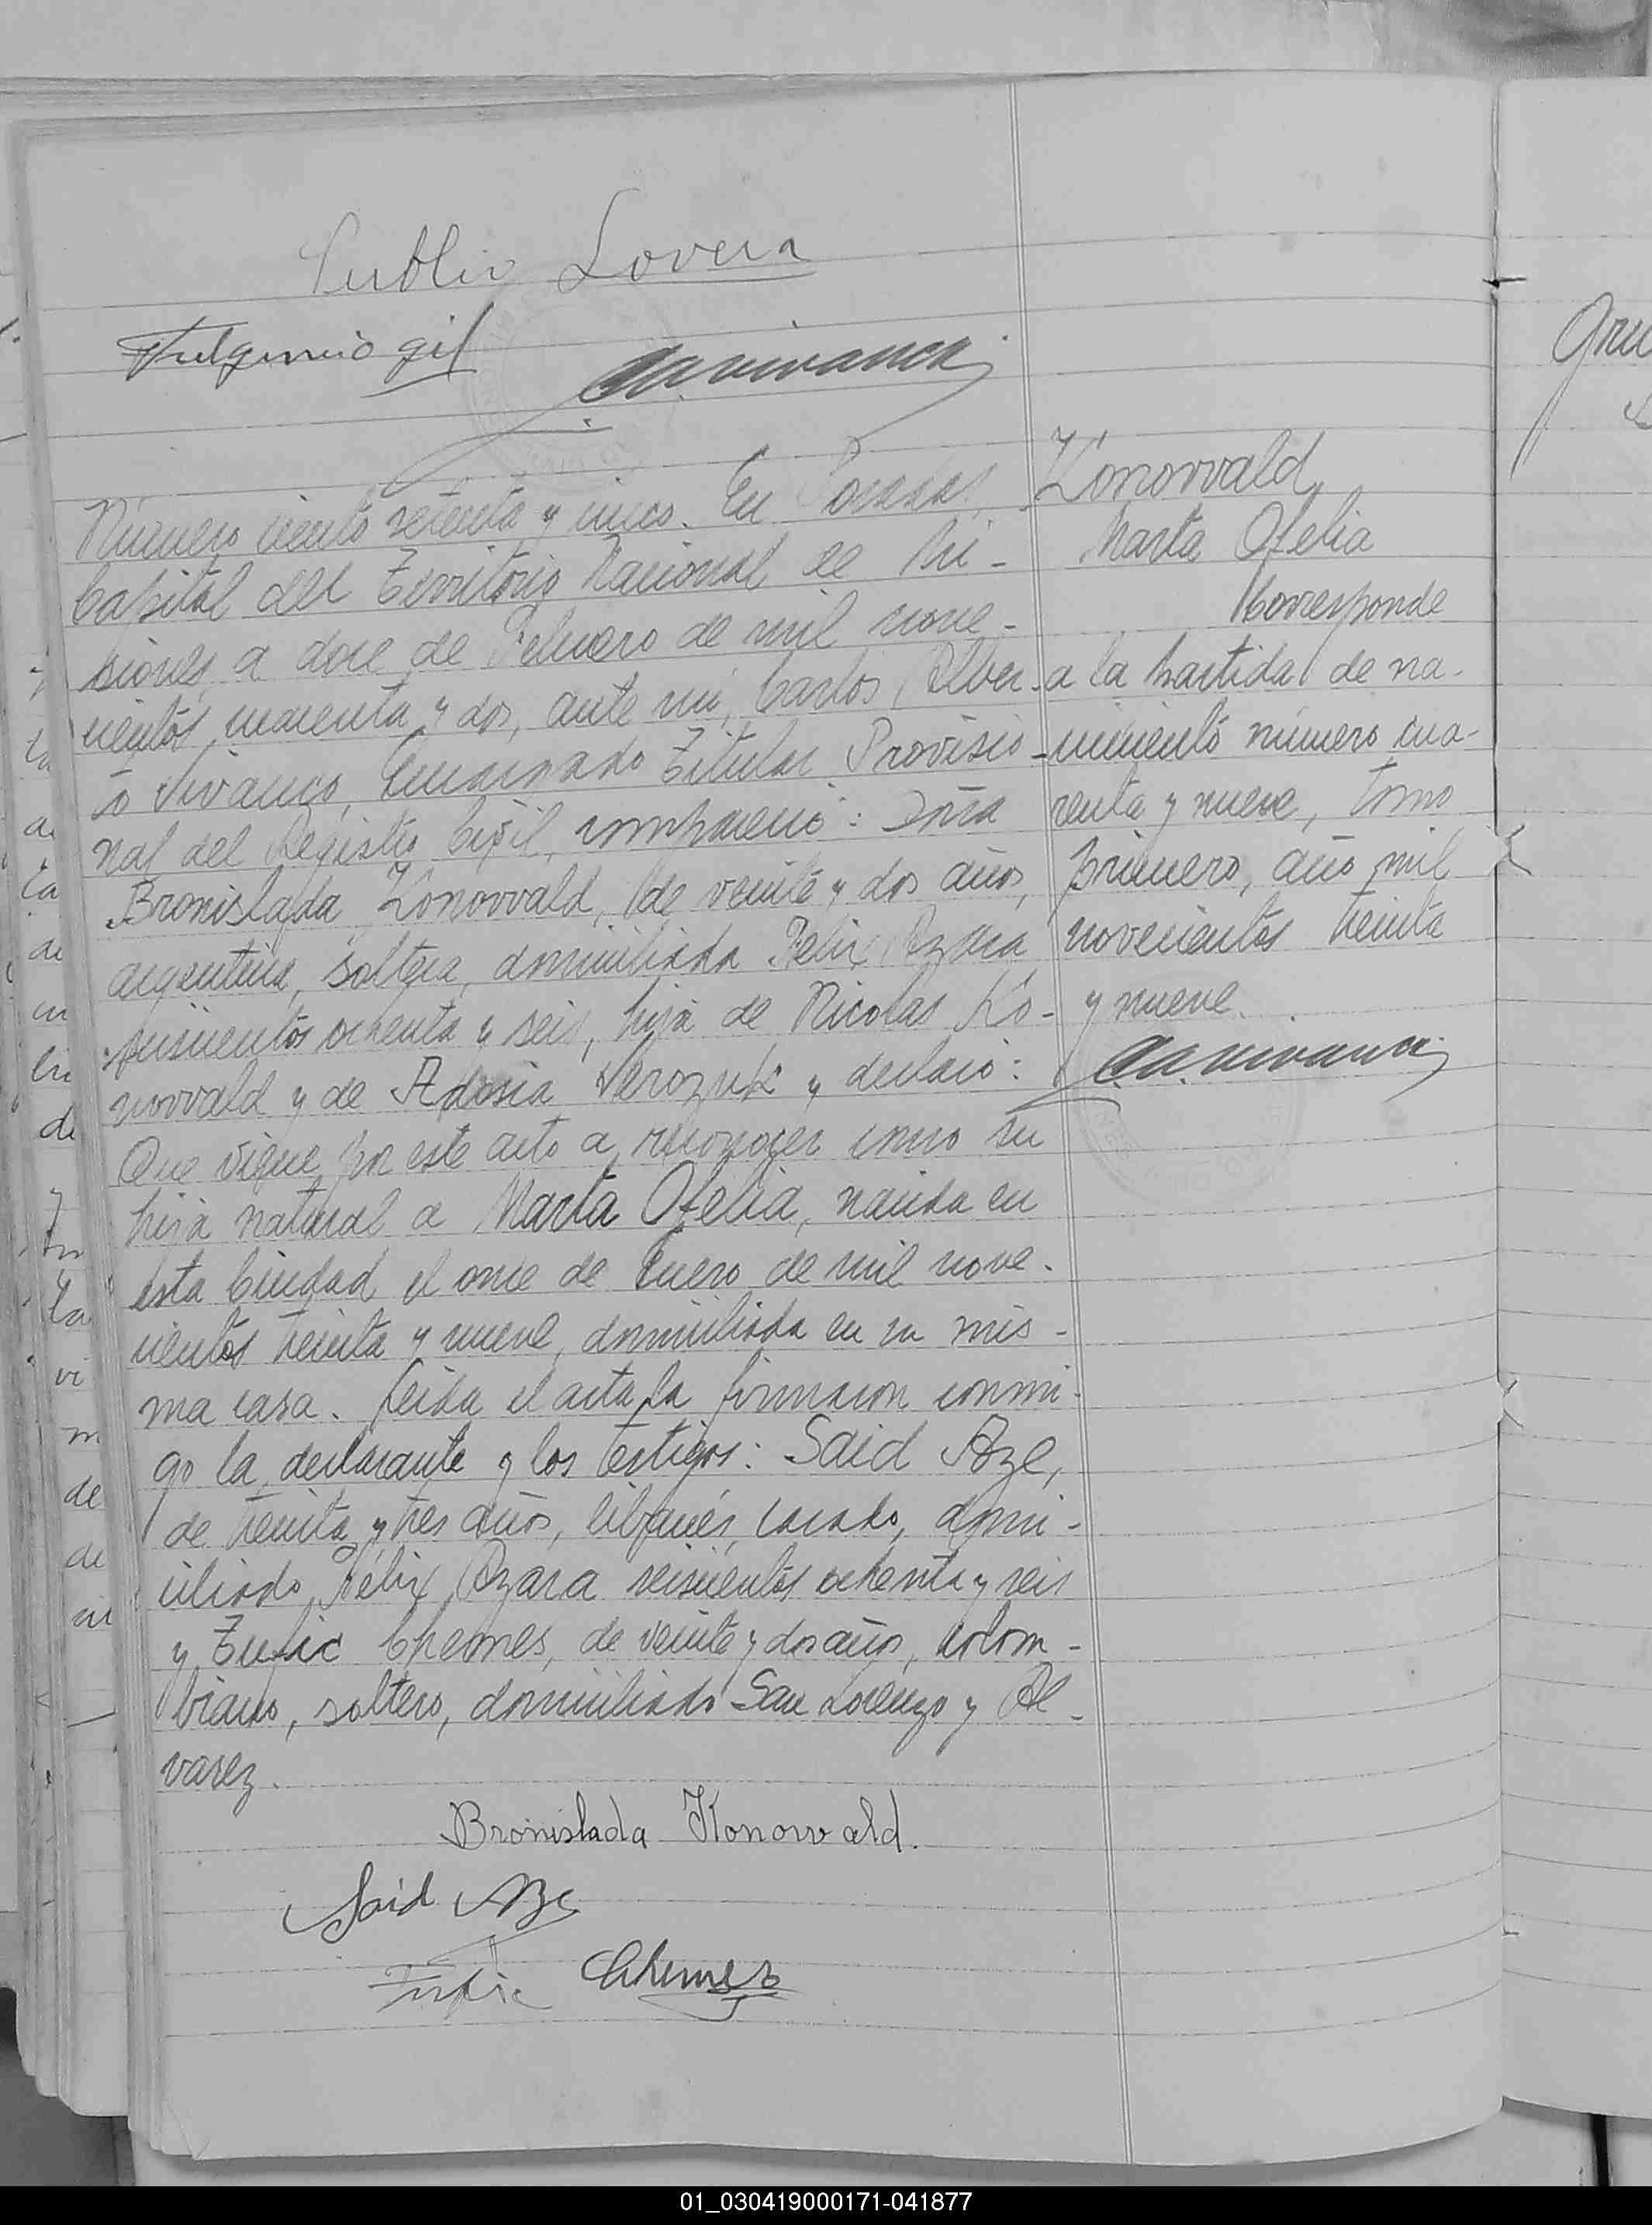 Publio Lovera
Fulgencio gil
Número ciento setenta y cinco. En Posadas,
Capital del Territorio Nacional de Mi-
siones, a doce de Febrero de mil nove-
cientos cuarenta y dos, ante mi, Carlos Alber-
to Vivanco, Encargado Titular Provisio-
nal del Registro Civil, compareció: Doña
Bronislada Konowald, de veinte y dos años,
argentina, soltera, domiciliada Felix Azara
seiscientos ochenta y seis, hija de Nicolas Ko-
nowald y de Adosia Werozuk y declaró:
Que viene por este acto a reconocer como su
hija natural a Marta Ofelia, nacida en
esta Ciudad el once de Enero de mil nove-
cientos treinta y nueve, domiciliada en su mis-
ma casa. Leida el acta la firmaron conmi-
go la declarante y los testigos: Said Aze,
de treinta y tres años, libanés, casado, domi-
ciliado Félix Azara seiscientos ochenta y seis
y Tufic Chemes, de veinte y dos años, colom-
biano, soltero, domiciliado San Lorenzo y Al-
varez.
Bronislada Konowald.
Said Aze
Tufic Chemes
Konowald
Marta Ofelia
Corresponde
a la partida de na-
cimiento número cua-
renta y nueve, tomo
primero, año mil
novecientos treinta
y nueve.
01_030419000171-041877